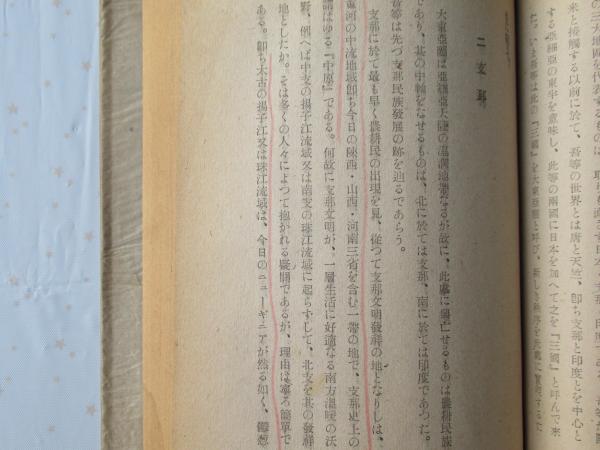 の三大地圏を代表するものは、
來と接觸する以前に於て、吾等の世界とは唐と天竺、卽ち支那と印度とを中心と
する亞細亞の東半を意味し、此等の兩國に日本を加へて之を『三國』と呼んで來
た。いま吾等は此の『三國』を大東亞圏と呼び、新しき秩序を此處に實現するた
二　支那
大東亞圏は亞細亞大陸の濕潤地帶なるが故に、此處に興亡せるものは農耕民族
であり、其の中軸をなせるものは、北に於ては支那、南に於ては印度であつた。
吾等は先づ支那民族發展の跡を辿るであらう。
支那に於て最も早く農耕民の出現を見、從つて支那文明發祥の地となりしは、
黄河の中流地域卽ち今日の陝西・山西・河南三省を含む一帶の地で、支那史上の
謂はゆる『中原』である。何故に支那文明が、一層生活に好適なる南方溫暖の沃
野、例へば中支の揚子江流域又は南支の珠江流域に起らずして、北支を其の發祥
地としたか。そは多くの人々によつて抱かれる疑問であるが、理由は寧ろ簡單で
ある。卽ち太古の揚子江又は珠江流域は、今日のニューギニアが然る如く、鬱蒼